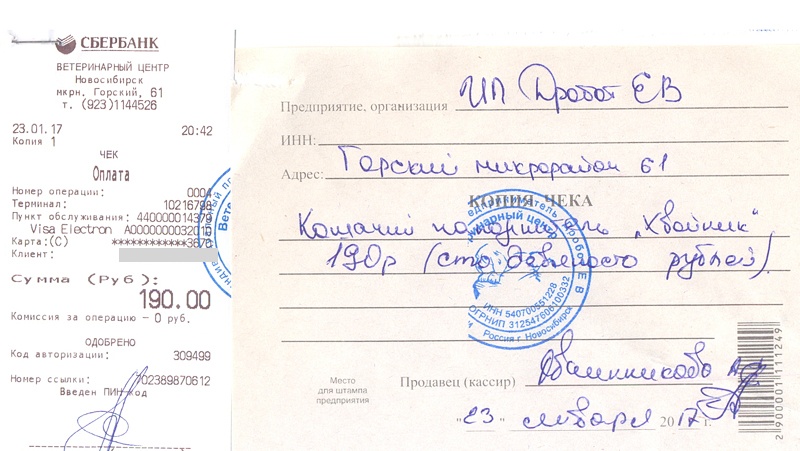 СБЕРБАНК
ВЕТЕРИНАРНЫЙ ЦЕНТР
Новосибирск
мкрн. Горский, 61
т. (923)1144526
23.01.17 20:42
Копия 1
ЧЕК
Оплата
Номер операции: 0004
Терминал: 10216798
Пункт обслуживания: 440000014379
Visa Electron A0000000032010
Карта:(C) ************3676
Клиент:
Сумма (Руб):
190.00
Комиссия за операцию – 0 руб.
ОДОБРЕНО
Код авторизации: 309499
Номер ссылки: 702389870612
Введен ПИН-код
Предприятие, организация ИП Дробот ЕВ
ИНН:
Адрес: Горский микрорайон 61
КОПИЯ ЧЕКА
Кошачий наполнитель „Хвойник"
190р (сто девяносто рублей).
ветеринарный центр
ИНН 540700551228
ОГРНИП 312547606100332
Россия г. Новосибирск
Место
для штампа
предприятия
Продавец (кассир)
"23" января 2017 г.
2900001111249